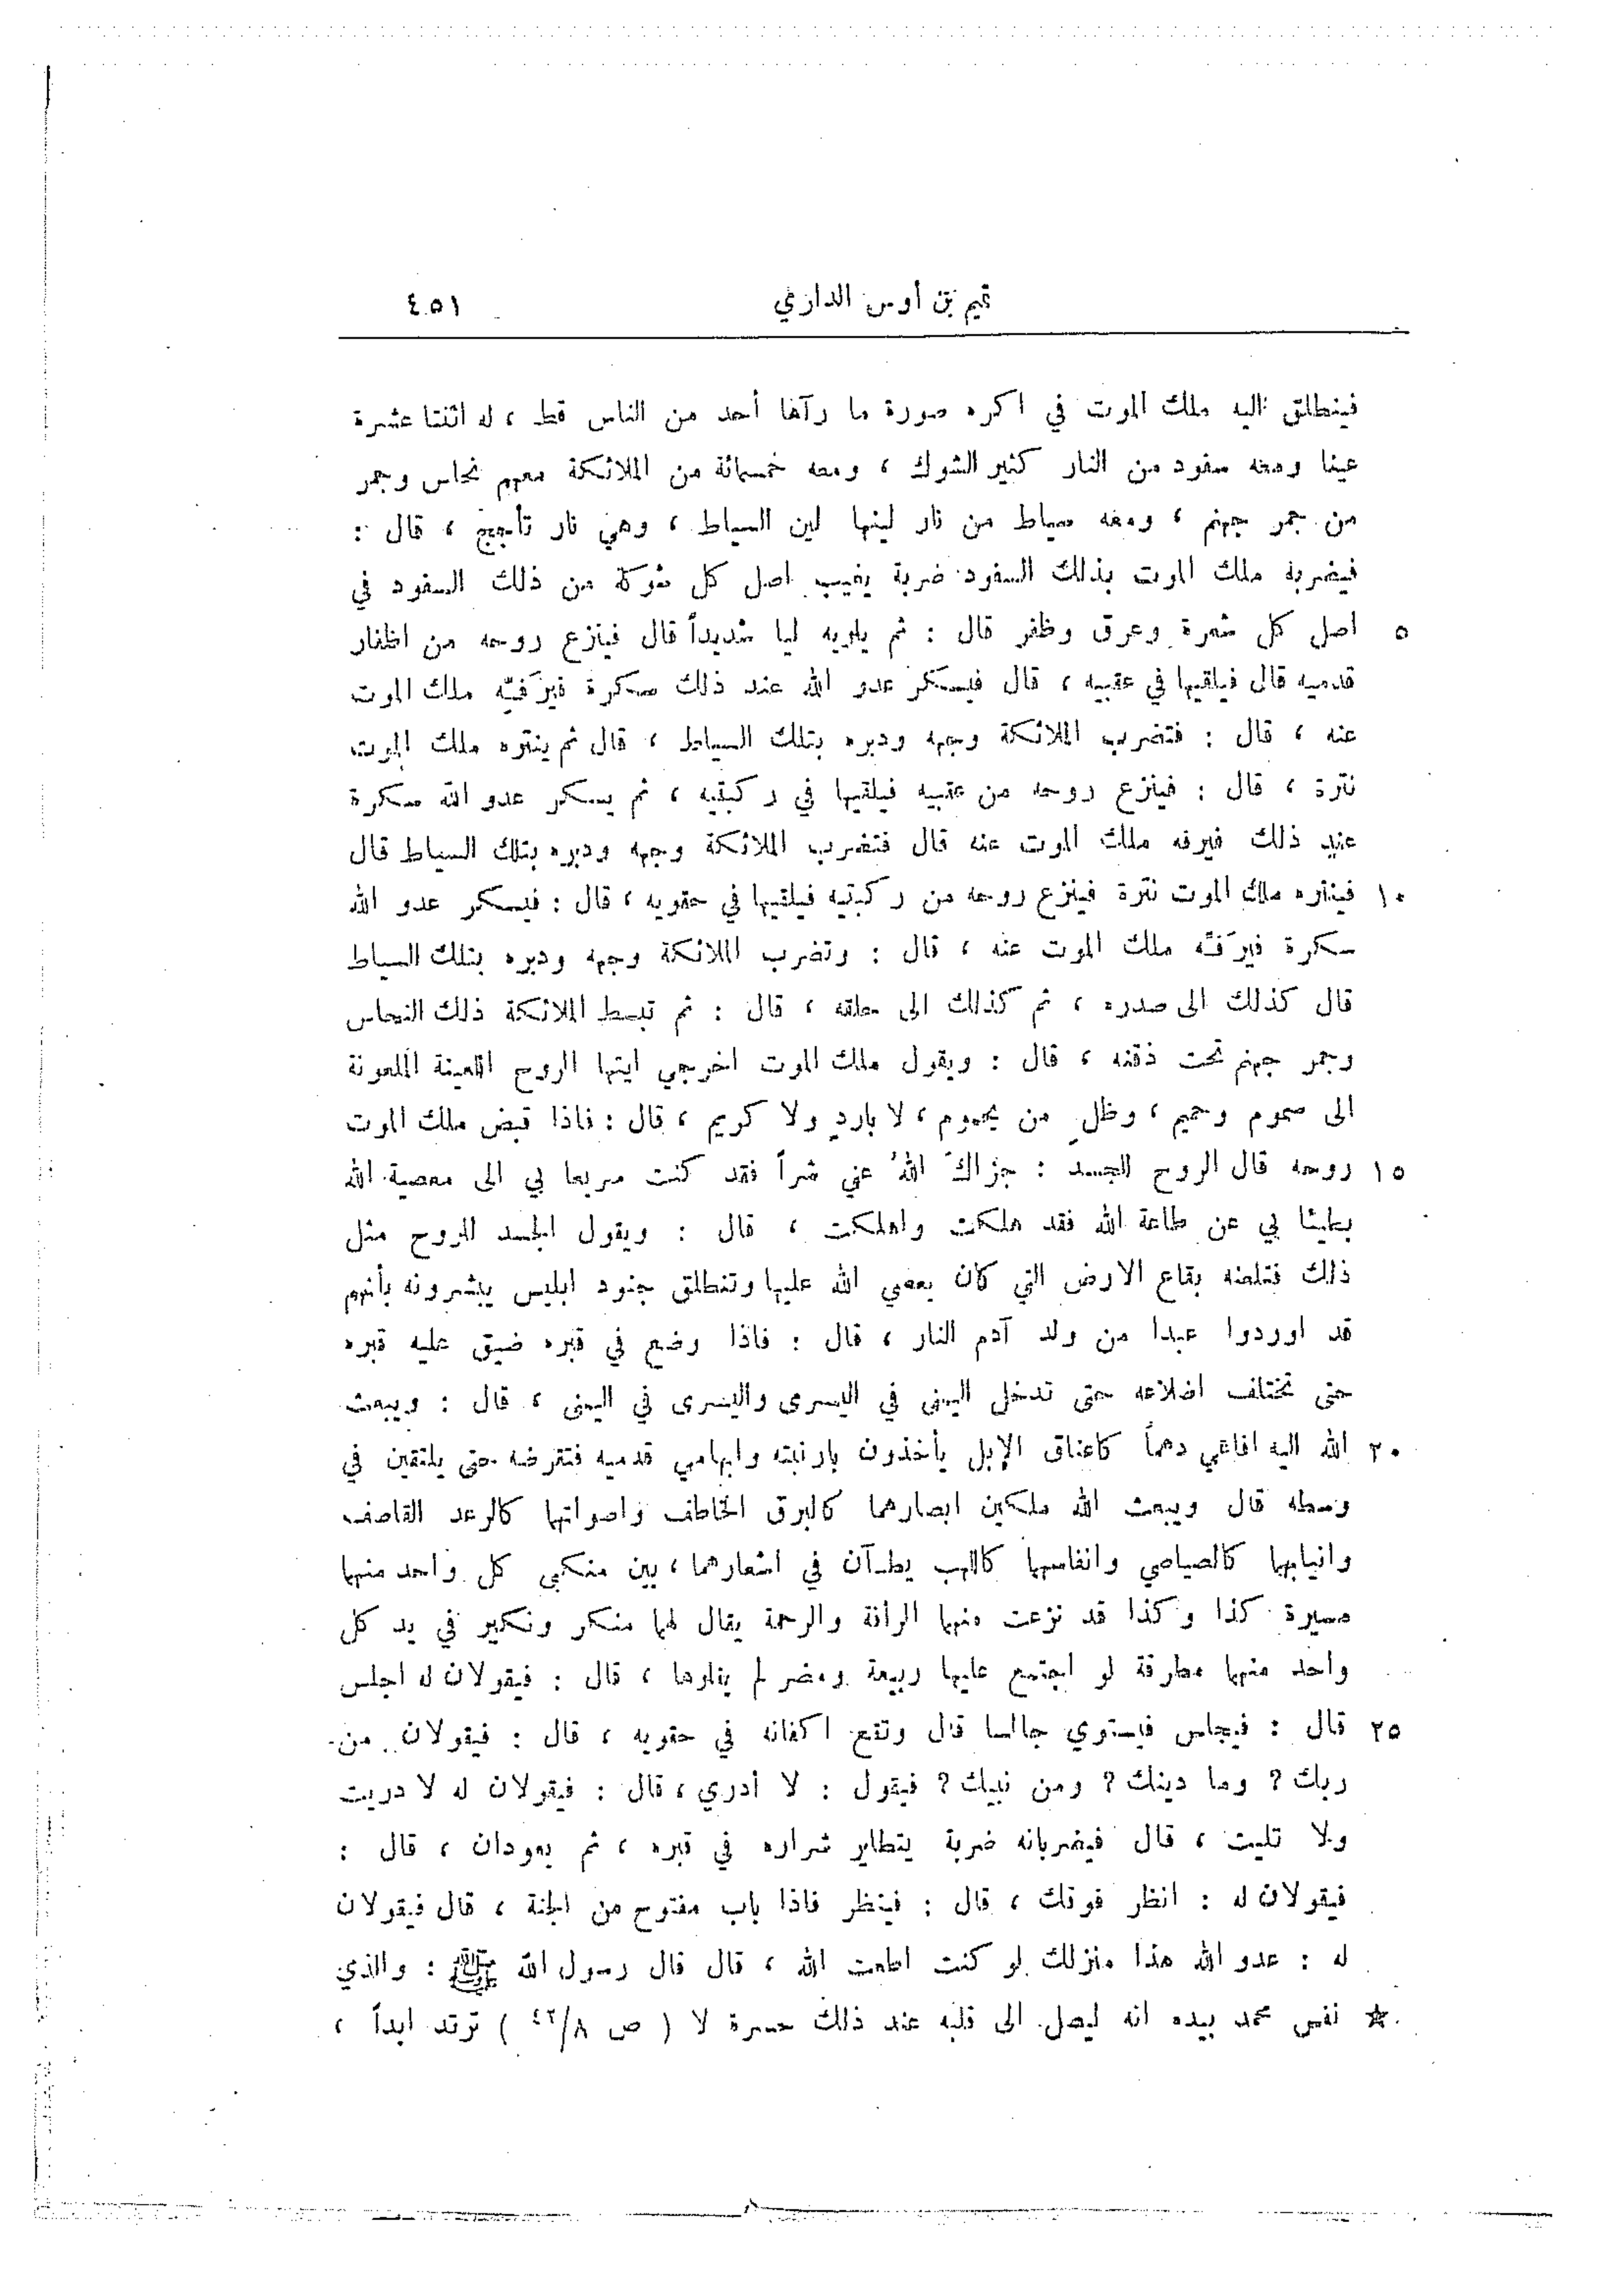 تميم بن أوس الداري ٤٥١
فينطلق اليه ملك الموت في اكره صورة ما رآها أحد من الناس قط ، له اثنتا عشرة
عينا ومعه سفود من النار كثير الشوك ، ومعه خمسمائة من الملائكة معهم نحاس وجمر
من جمر جهنم ، ومعه سياط من نار لينها لين السياط ، وهي نار تأجج ، قال :
فيضربه ملك الموت بذلك السفود ضربة يغيب اصل كل شوكة من ذلك السفود في
٥ اصل كل شعرة وعرق وظفر قال : ثم يلويه ليا شديداً قال فينزع روحه من اظفار
قدميه قال فيلقيها في عقبيه ، قال فيسكر عدو الله عند ذلك سكرة فيرَفّه ملك الموت
عنه ، قال : فتضرب الملائكة وجهه ودبره بتلك السياط ، قال ثم ينتره ملك الموت
نترة ، قال : فينزع روحه من عقبيه فيلقيها في ركبتيه ، ثم يسكر عدو الله سكرة
عند ذلك فيرفه ملك الموت عنه قال فتضرب الملائكة وجهه ودبره بتلك السياط قال
١٠ فينتره ملك الموت نترة فينزع روحه من ركبتيه فيلقيها في حقويه ، قال : فيسكر عدو الله
سكرة فيرَفّه ملك الموت عنه ، قال : وتضرب الملائكة وجهه ودبره بتلك السياط
قال كذلك الى صدره ، ثم كذلك الى حلقه ، قال : ثم تبسط الملائكة ذلك النحاس
وجمر جهنم تحت ذقنه ، قال : ويقول ملك الموت اخرجي ايتها الروح اللعينة الملعونة
الى سموم وحميم ، وظلٍ من يحموم ، لا باردٍ ولا كريم ، قال : فاذا قبض ملك الموت
١٥ روحه قال الروح للجسد : جزاكَ اللهُ عني شراً فقد كنت سريعا بي الى معصية الله
بطيئا بي عن طاعة الله فقد هلكت واهلكت ، قال : ويقول الجسد للروح مثل
ذلك فتلعنه بقاع الارض التي كان يعصي الله عليها وتنطلق جنود ابليس يبشرونه بأنهم
قد اوردوا عبدا من ولد آدم النار ، قال : فاذا وضع في قبره ضيق عليه قبره
حتى تختلف اضلاعه حتى تدخل اليمنى في اليسرى واليسرى في اليمنى ، قال : ويبعث
٢٠ الله اليه افاعي دهماً كاعناق الإبل يأخذون بارنبته وابهامي قدميه فتقرضه حتى يلتقين في
وسطه قال ويبعث الله ملكين ابصارهما كالبرق الخاطف واصواتهما كالرعد القاصف
وانيابهما كالصياصي وانفاسهما كاللهب يطآن في اشعارهما ، بين منكبي كل واحد منهما
مسيرة كذا وكذا قد نزعت منهما الرأفة والرحمة يقال لهما منكر ونكير في يد كل
واحد منهما مطرقة لو اجتمع عليها ربيعة ومضر لم يقلوها ، قال : فيقولان له اجلس
٢٥ قال : فيجلس فيستوي جالسا قال وتقع اكفانه في حقويه ، قال : فيقولان من
ربك ؟ وما دينك ؟ ومن نبيك ؟ فيقول : لا أدري ، قال : فيقولان له لا دريت
ولا تليت ، قال فيضربانه ضربة يتطاير شراره في قبره ، ثم يعودان ، قال :
فيقولان له : انظر فوقك ، قال : فينظر فاذا باب مفتوح من الجنة ، قال فيقولان
له : عدو الله هذا منزلك لو كنت اطعت الله ، قال قال رسول الله ﷺ : والذي
☆ نفس محمد بيده انه ليصل الى قلبه عند ذلك حسرة لا ( ص ٤٢/٨ ) ترتد ابداً ،